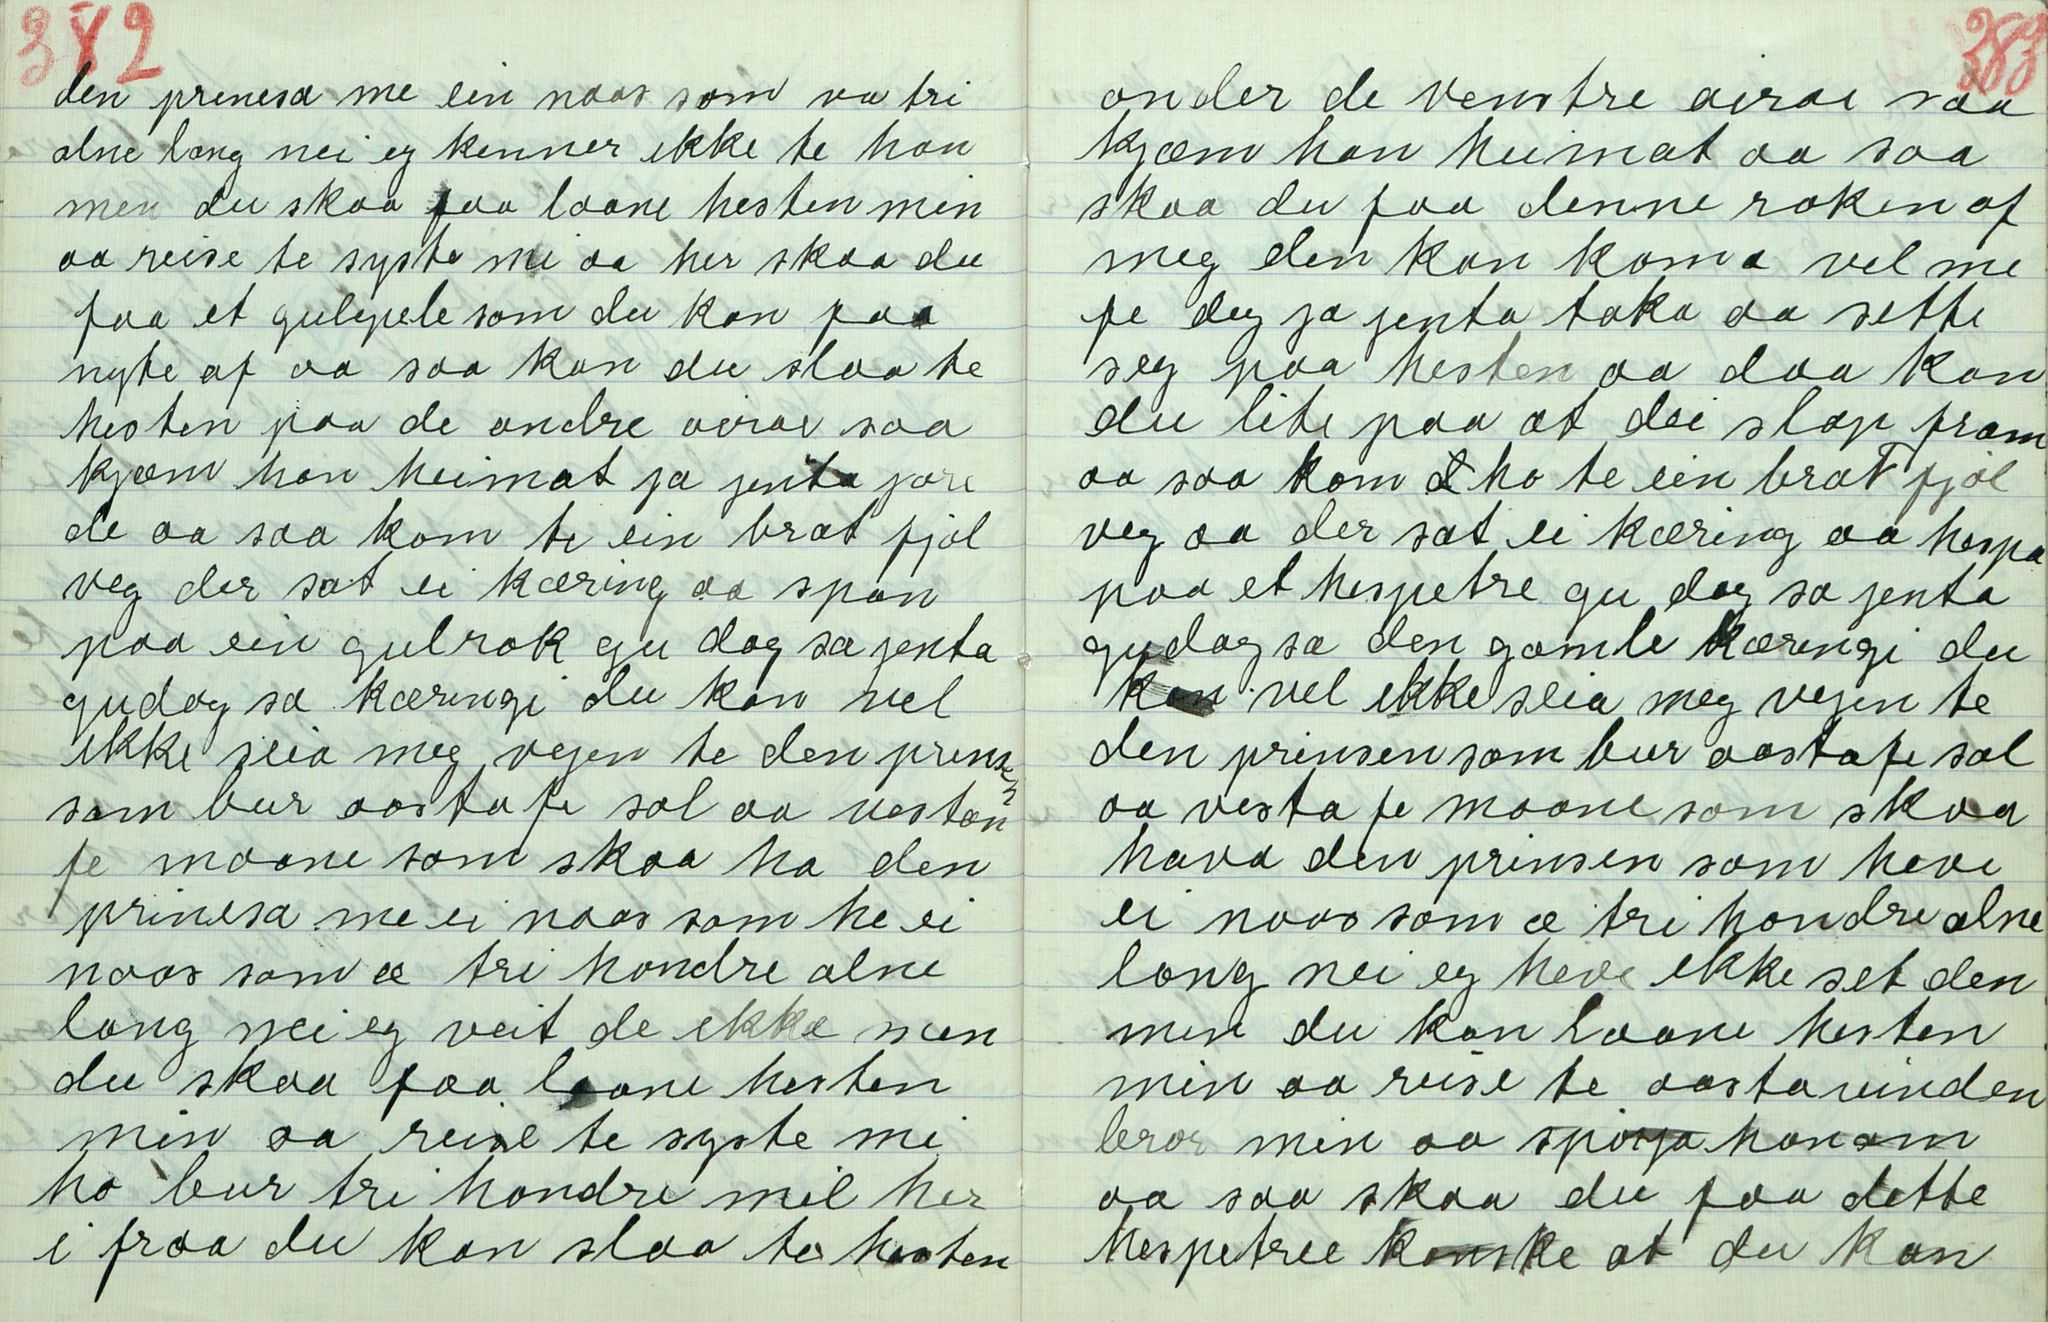 382
den prinesa me ein naas som va tri
alne lang nei eg kenner ikke te han
men du skaa faa laane hesten min
aa reise te syste mi aa her skaa du
faa et gulepele som du kan faa
nyte af aa saa kan du slaa te
hesten paa de andre oirae saa
kjæm han heimat ja jenta jore
de aa saa kom te ein brat fjøl
veg der sat ei kæring aa span
paa ein gulrok gu dag sa jenta
gudag sa kæringi du kan vel
ikke seia meg vejen te den prinsen
som bur aasta fe sol aa vestan
fe maane som skaa ha den
prinesa me ei naas som he ei
naas som æ tri hondre alne
lang nei eg veit de ikke men
du skaa faa laane hesten
min aa reise te syste mi
ho bur tri hondre mil her
i fraa du kan slaa te hesten
383
onder de venstre oirae saa
kjæm han heimat aa saa
skaa du faa denne roken af
meg den kan koma vel me
fe deg ja jenta taka aa sette
seg paa hesten aa daa kan
du lite paa at dei slap fram
aa saa kom ho te ein brat fjøl
veg aa der sat ei kæring aa hespa
paa et hespetre gu dag sa jenta
gudag sa den gamle kæringi du
kan vel ikke seia meg vejen te
den prinsen som bur aasta fe sol
aa vesta fe maane som skaa
hava den prinsen som heve
ei naas som æ tri hondre alne
lang nei eg heve ikke set den
men du kan laane hesten
min aa reise te aastavinden
bror min aa spørja honom
aa saa skaa du faa dette
hespetree kanske at du kan